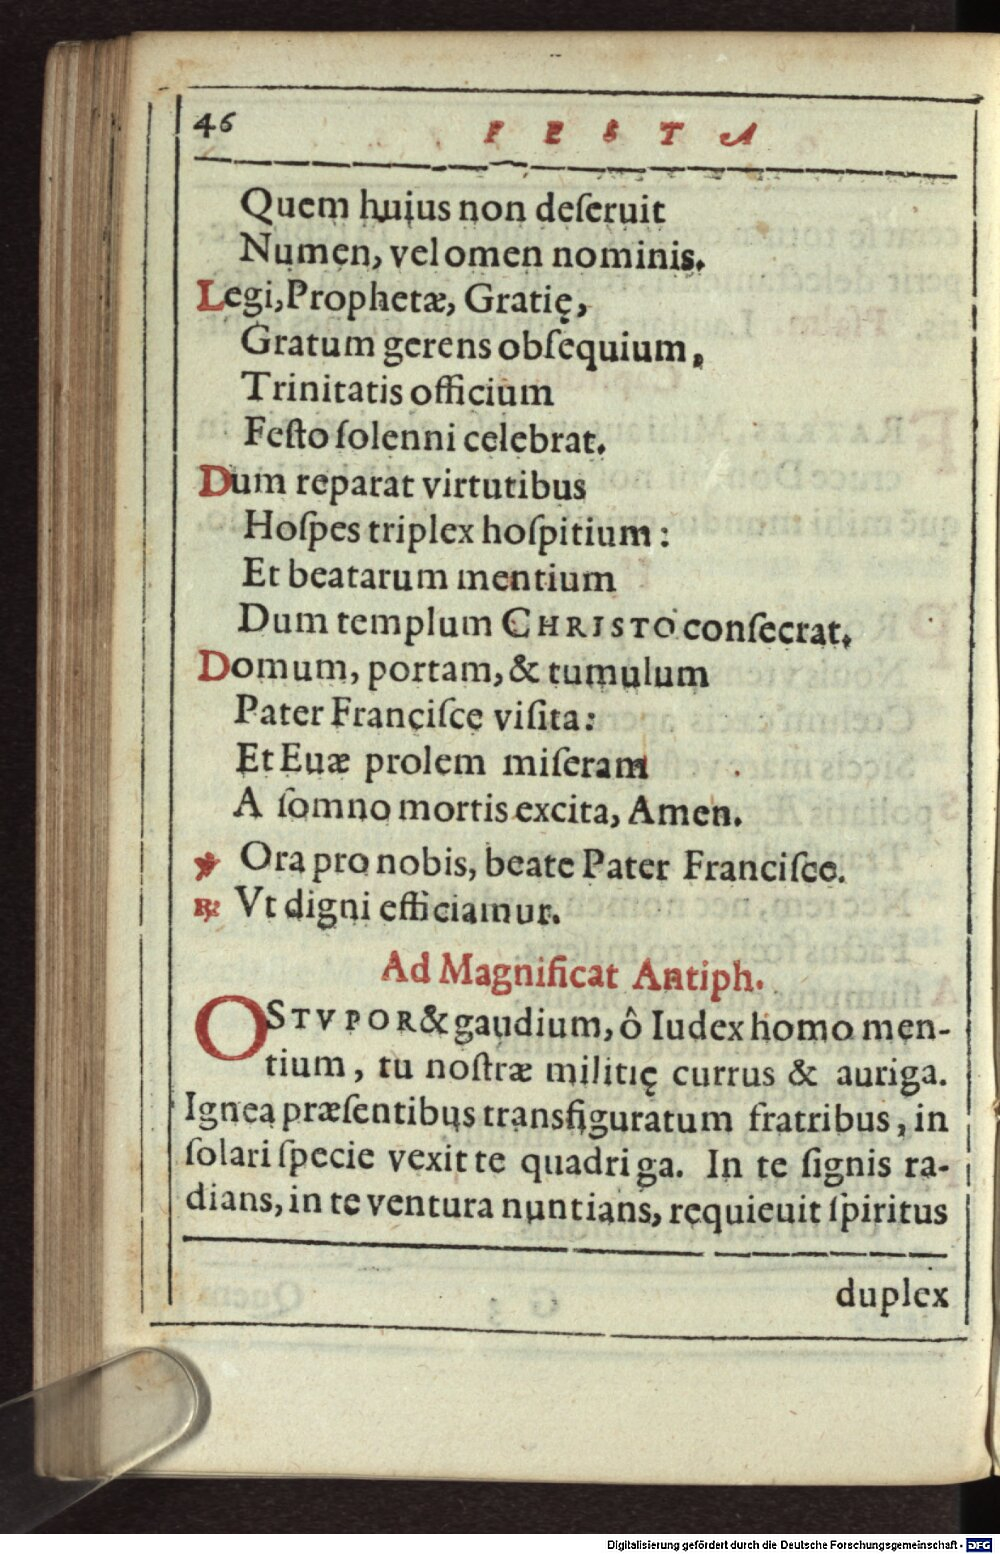 46
FESTA
Quem huius non deſeruit
Numen, vel omen nominis.
Legi, Prophetæ, Gratię,
Gratum gerens obſequium,
Trinitatis officium
Feſto ſolenni celebrat.
Dum reparat virtutibus
Hoſpes triplex hoſpitium:
Et beatarum mentium
Dum templum CHRISTO conſecrat.
Domum, portam, & tumulum
Pater Franciſce viſita:
Et Euæ prolem miſeram
A ſomno mortis excita, Amen.
℣ Ora pro nobis, beate Pater Franciſce.
℟ Vt digni efficiamur.
Ad Magnificat Antiph.
O STVPOR & gaudium, ô Iudex homo men-
tium, tu noſtræ militię currus & auriga.
Ignea præſentibus transfiguratum fratribus, in
ſolari ſpecie vexit te quadriga. In te ſignis ra-
dians, in te ventura nuntians, requieuit ſpiritus
duplex
Digitalisierung gefördert durch die Deutsche Forschungsgemeinschaft - DFG